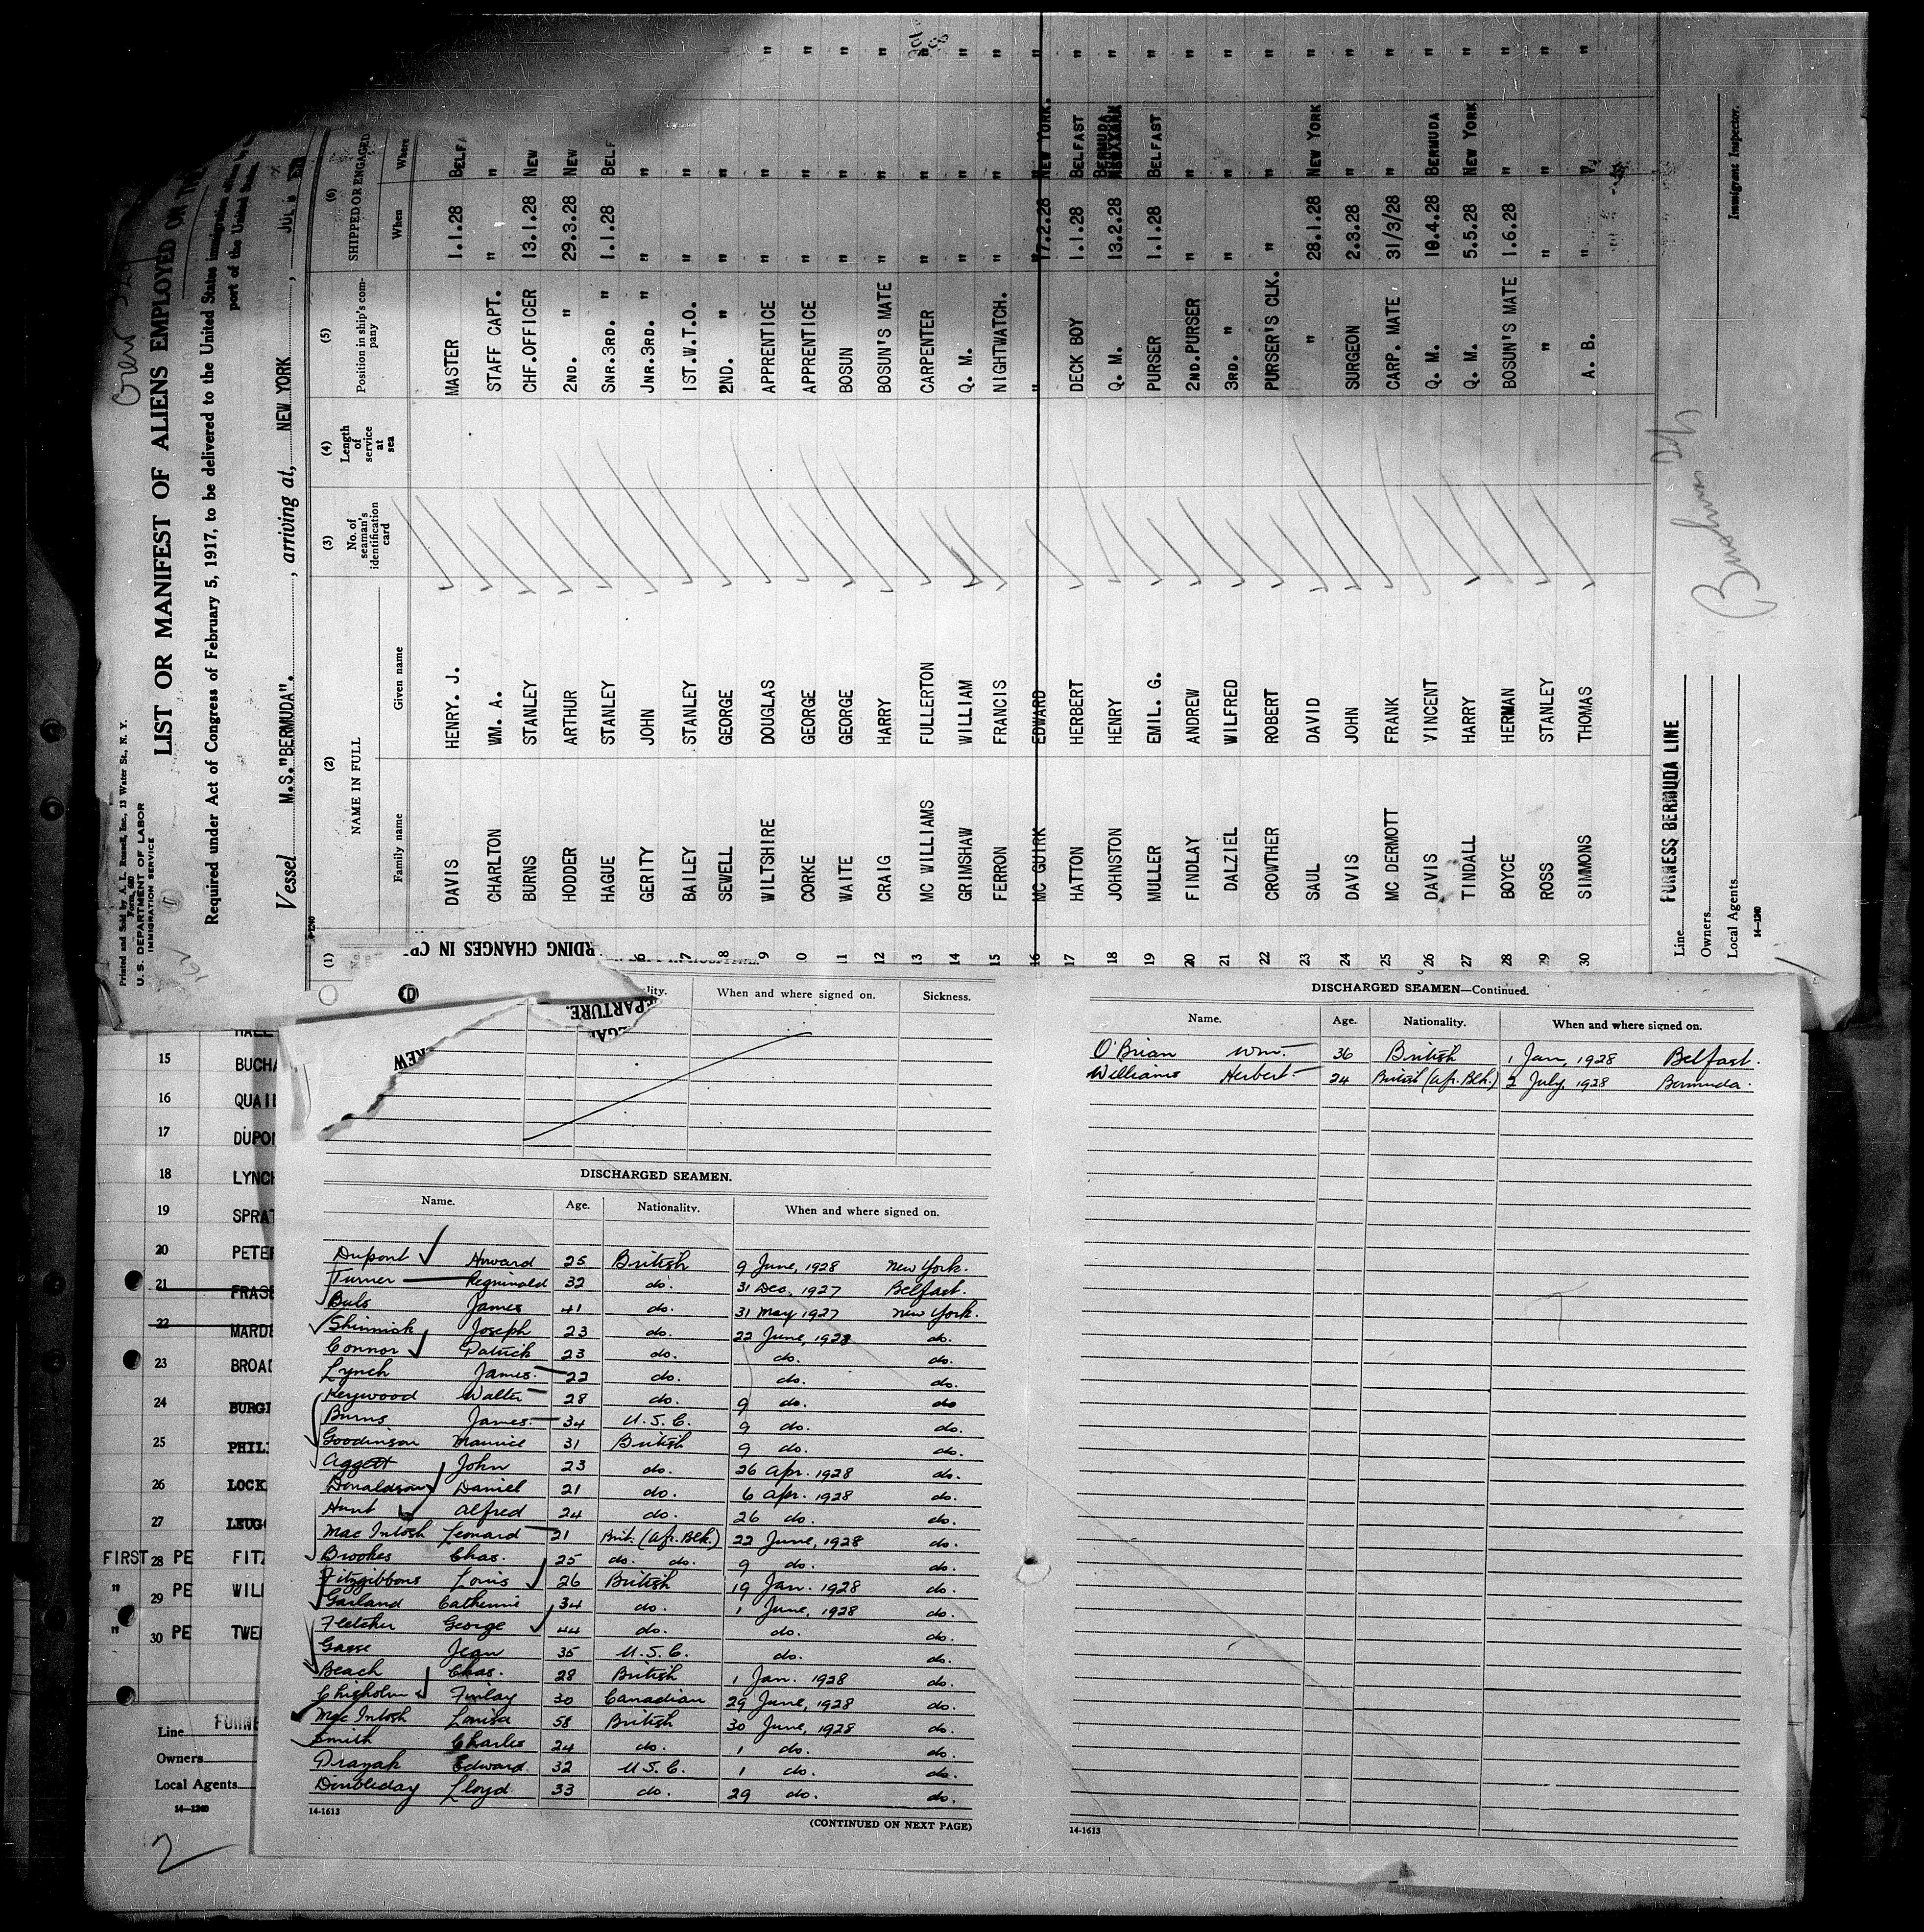 Printed and Sold by A. L. Russell, Inc., 13 Water St., N. Y.
Form 680
U. S. DEPARTMENT OF LABOR
IMMIGRATION SERVICE
LIST OR MANIFEST OF ALIENS EMPLOYED ON TH
Required under Act of Congress of February 5, 1917, to be delivered to the United States immigration
port of the United States
Vessel M.S."BERMUDA". , arriving at, NEW YORK , JUL
(1) (2) (3) (4) (5) (6)
No. NAME IN FULL No. of seaman's identification card Length of service at sea Position in ship's company SHIPPED OR ENGAGED
Family name Given name When Where
DAVIS HENRY. J. MASTER 1.1.28 BELFA
CHARLTON WM. A. STAFF CAPT. " "
BURNS STANLEY CHF.OFFICER 13.1.28 NEW
HODDER ARTHUR 2ND. " 29.3.28 NEW
HAGUE STANLEY SNR.3RD. " 1.1.28 BELF
6 GERITY JOHN JNR.3RD. " " "
7 BAILEY STANLEY 1ST.W.T.O. " "
8 SEWELL GEORGE 2ND. " " "
9 WILTSHIRE DOUGLAS APPRENTICE " " "
10 CORKE GEORGE APPRENTICE " " "
11 WAITE GEORGE BOSUN " " "
12 CRAIG HARRY BOSUN'S MATE " " "
13 MC WILLIAMS FULLERTON CARPENTER " " "
14 GRIMSHAW WILLIAM Q. M. " " "
15 FERRON FRANCIS NIGHTWATCH. " " "
16 MC GUIRK EDWARD " 17.2.28 NEW YORK. "
17 HATTON HERBERT DECK BOY 1.1.28 BELFAST "
18 JOHNSTON HENRY Q. M. 13.2.28 BERMUDA "
19 MULLER EMIL G. PURSER 1.1.28 BELFAST "
20 FINDLAY ANDREW 2ND.PURSER " " "
21 DALZIEL WILFRED 3RD. " " " "
22 CROWTHER ROBERT PURSER'S CLK. " " "
23 SAUL DAVID " 28.1.28 NEW YORK "
24 DAVIS JOHN SURGEON 2.3.28 " "
25 MC DERMOTT FRANK CARP. MATE 31/3/28 " "
26 DAVIS VINCENT Q. M. 10.4.28 BERMUDA "
27 TINDALL HARRY Q. M. 5.5.28 NEW YORK "
28 BOYCE HERMAN BOSUN'S MATE 1.6.28 " "
29 ROSS STANLEY " " " "
30 SIMMONS THOMAS A. B. " " "
Line FURNESS BERMUDA LINE
Owners
Local Agents
14—1240
Immigrant Inspector.
RDING CHANGES IN CR
EPARTURE.
REW
lity. When and where signed on. Sickness.
DISCHARGED SEAMEN.
Name. Age. Nationality. When and where signed on.
Dupont Howard 25 British 9 June, 1928 New York.
Turner Reginald 32 do. 31 Dec. 1927 Belfast.
Buls James 41 do. 31 May 1927 New York.
Shinnick Joseph 23 do. 22 June, 1928 do.
Connor Patrick 23 do. do. do.
Lynch James 22 do. do. do.
Heywood Walter 28 do. 9 do. do
Burns James 34 U.S.C. 9 do. do.
Goodinson Maurice 31 British 9 do. do.
Aggett John 23 do. 26 Apr. 1928 do.
Donaldson Daniel 21 do. 6 Apr. 1928 do.
Hunt Alfred 24 do. 26 do. do.
Mac Intosh Leonard 21 Brit. (Af. Blk.) 22 June, 1928 do.
Brookes Chas. 25 do. do. 9 do. do.
Fitzgibbons Louis 26 British 19 Jan. 1928 do.
Garland Catherine 34 do. 1 June, 1928 do.
Fletcher George 44 do. do. do.
Gasse Jean 35 U.S.C. do. do.
Beach Chas. 28 British 1 Jan. 1928 do.
Chisholm Finlay 30 Canadian 29 June, 1928 do.
Mac Intosh Louisa 58 British 30 June, 1928 do.
Smith Charles 24 do. 1 do. do.
Prayak Edward 32 U.S.C. 1 do. do.
Dinbleday Lloyd 33 do. 29 do. do.
14-1613
(CONTINUED ON NEXT PAGE)
DISCHARGED SEAMEN—Continued.
Name. Age. Nationality. When and where signed on.
O'Brian Wm. 36 British 1 Jan, 1928 Belfast.
Williams Herbert 24 British (Af. Blk.) 2 July, 1928 Bermuda.
14-1613
HALL
15 BUCHA
16 QUAI
17 DUPON
18 LYNCH
19 SPRAT
20 PETER
21 FRASE
22 MARDE
23 BROAD
24 BURGE
25 PHIL
26 LOCK
27 LEUG
FIRST 28 PE FITZ
" 29 PE WILL
" 30 PE TWE
Line FURNE
Owners
Local Agents
14—1240
2